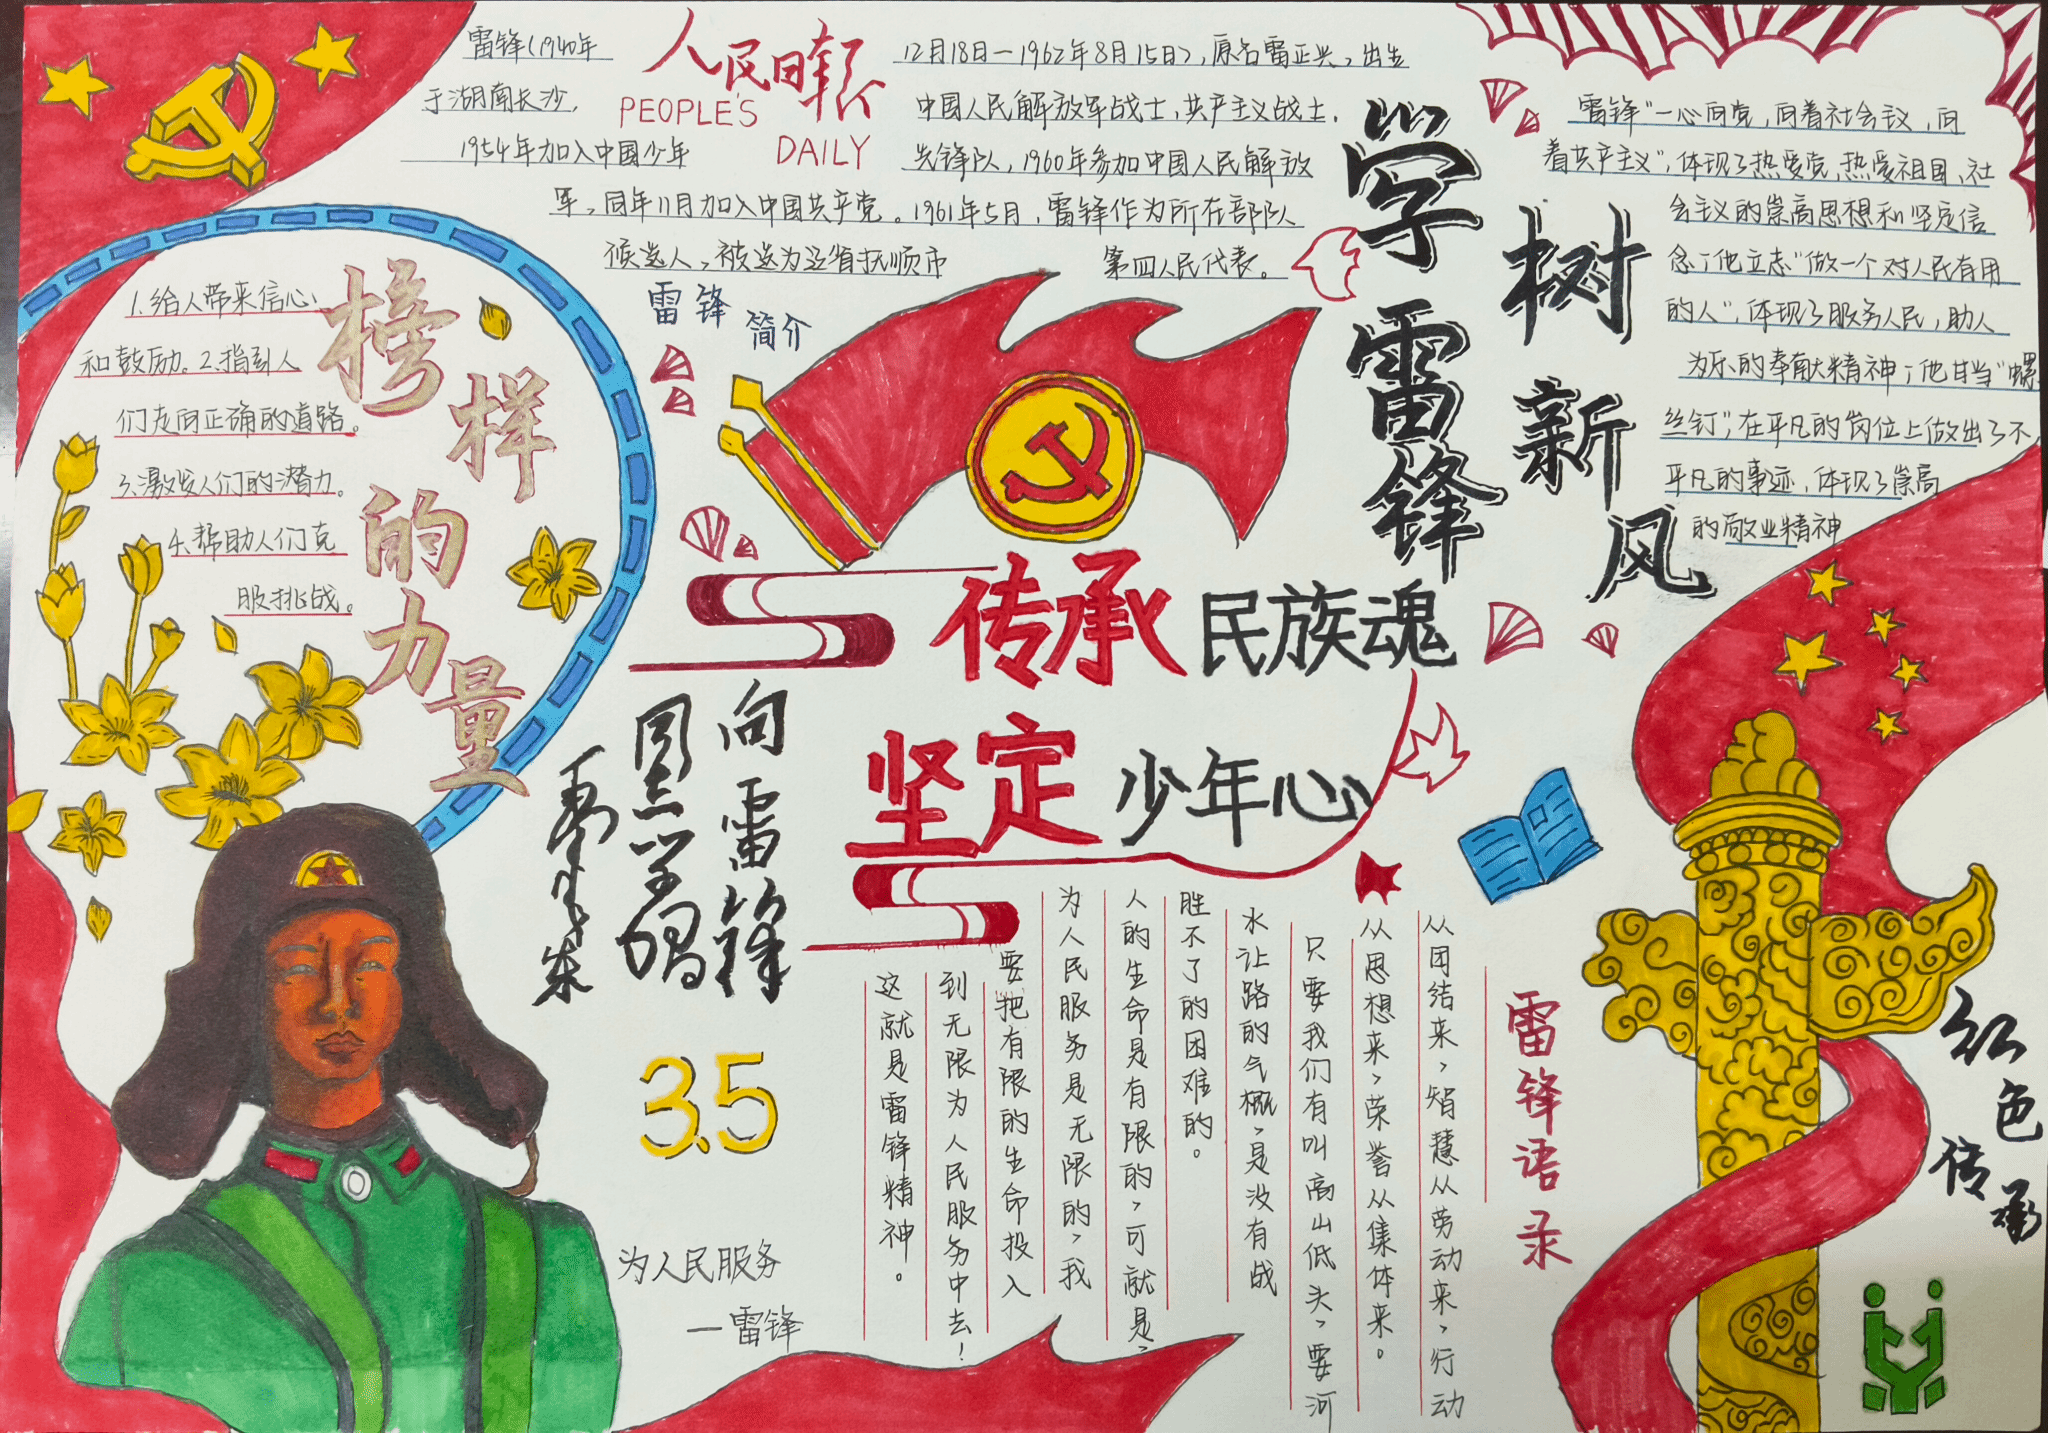 人民日报
PEOPLE'S
DAILY
雷锋(1940年
12月18日—1962年8月15日),原名雷正兴,出生
于湖南长沙,
中国人民解放军战士,共产主义战士,
1954年加入中国少年
先锋队,1960年参加中国人民解放
军,同年11月加入中国共产党。1961年5月,雷锋作为所在部队
候选人,被选为辽省抚顺市
第四人民代表。
雷锋
简介
学雷锋
树新风
雷锋"一心向党,向着社会主义,向
着共产主义",体现了热爱党,热爱祖国,社
会主义的崇高思想和坚定信
念;他立志"做一个对人民有用
的人",体现了服务人民,助人
为乐的奉献精神;他甘当"螺
丝钉",在平凡的岗位上做出了不
平凡的事迹,体现了崇高
的敬业精神
榜样的力量
1.给人带来信心、
和鼓励。2.指引人
们走向正确的道路。
3.激发人们的潜力。
4.帮助人们克
服挑战。
传承民族魂
坚定少年心
向雷锋
同志学习
毛泽东
3.5
为人民服务
—雷锋
雷锋语录
从团结来,智慧从劳动来,行动
从思想来,荣誉从集体来。
只要我们有叫高山低头,要河
水让路的气概,是没有战
胜不了的困难的。
人的生命是有限的,可就是,
为人民服务是无限的,我
要把有限的生命投入
到无限为人民服务中去!
这就是雷锋精神。
红色
传承